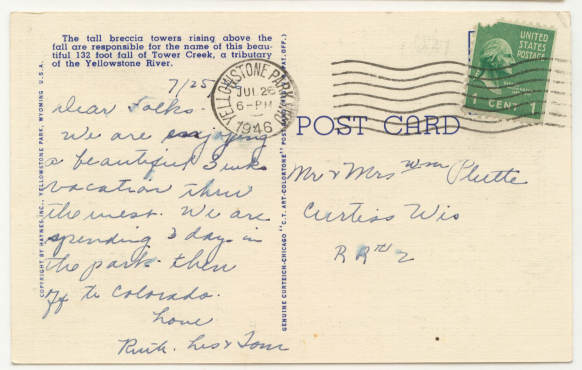 The tall breccia towers rising above the
fall are responsible for the name of this beau-
tiful 132 foot fall of Tower Creek, a tributary
of the Yellowstone River.
7/25
Dear Folks.
We are enjoying
a beautiful 3 wks
vacation thru
the west. We are
spending 3 days in
the park then
to Colorado.
Love
Ruth. Les & Tom
COPYRIGHT BY HAYNES, INC., YELLOWSTONE PARK, WYOMING U.S.A.
GENUINE CURTEICH-CHICAGO "C.T. ART-COLORTONE" POST
PAT. OFF.)
YELLOWSTONE PARK
JUL 26
6-PM
1946
UNITED
STATES
POSTAGE
1 CENT 1
POST CARD
Mr & Mrs Wm Plutte
Curtiss Wis
RR 2